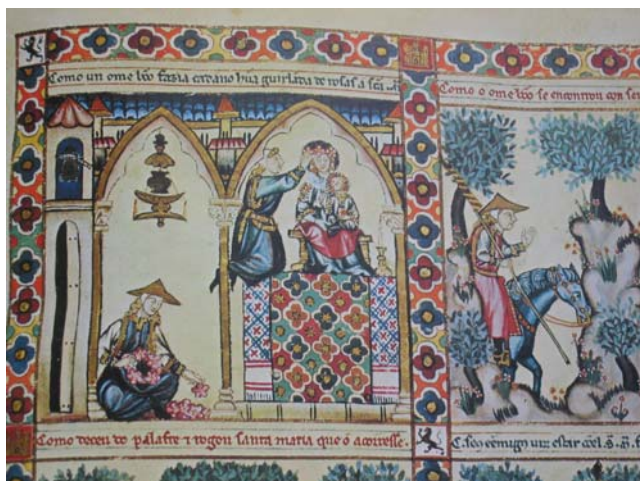 Como un ome bõo fazia cadano hũa guirlãda de rosas a scã
Como o ome bõo se encontrou con seu
Como deceu do palafre ⁊ rogou santa maria que o acorresse.
C. seu ẽemigo